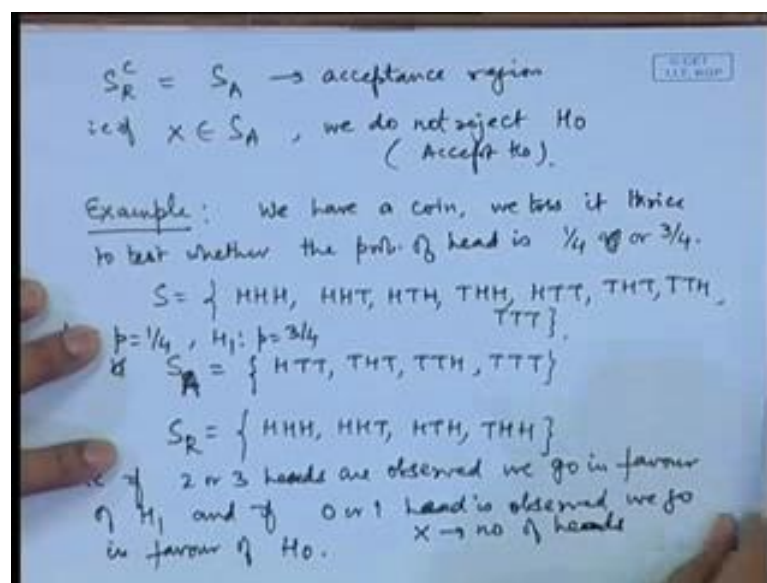 S_R^C = S_A → acceptance region
i.e. if x ∈ S_A , we do not reject H₀
( Accept H₀ ).
Example : We have a coin, we toss it thrice
to test whether the prob. of head is 1/4 or 3/4.
S = { HHH, HHT, HTH, THH, HTT, THT, TTH,
TTT }.
p = 1/4 , H₁ : p = 3/4
S_A = { HTT, THT, TTH , TTT }
S_R = { HHH, HHT, HTH, THH }
i.e. if 2 or 3 heads are observed we go in favour
of H₁ and if 0 or 1 head is observed we go
in favour of H₀.
X → no of heads